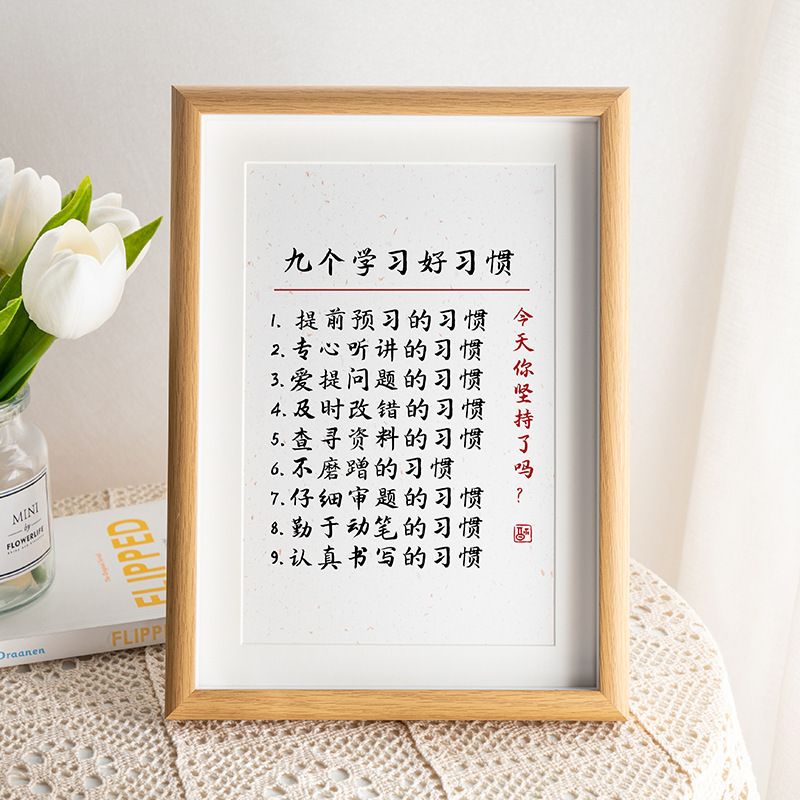 九个学习好习惯
1. 提前预习的习惯
2. 专心听讲的习惯
3. 爱提问题的习惯
4. 及时改错的习惯
5. 查寻资料的习惯
6. 不磨蹭的习惯
7. 仔细审题的习惯
8. 勤于动笔的习惯
9. 认真书写的习惯
今天你坚持了吗?
MINI
by
FLOWERLIFE
FLIPPED
FLIPPE
Draanen